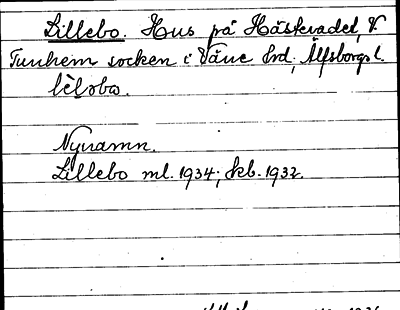 Lillebo. Hus på Håskradet, V.
Tunhem socken i Väne hrd, Älfsborgs l.
lèlobo.
Nynamn.
Lillebo ml. 1934; kb. 1932.